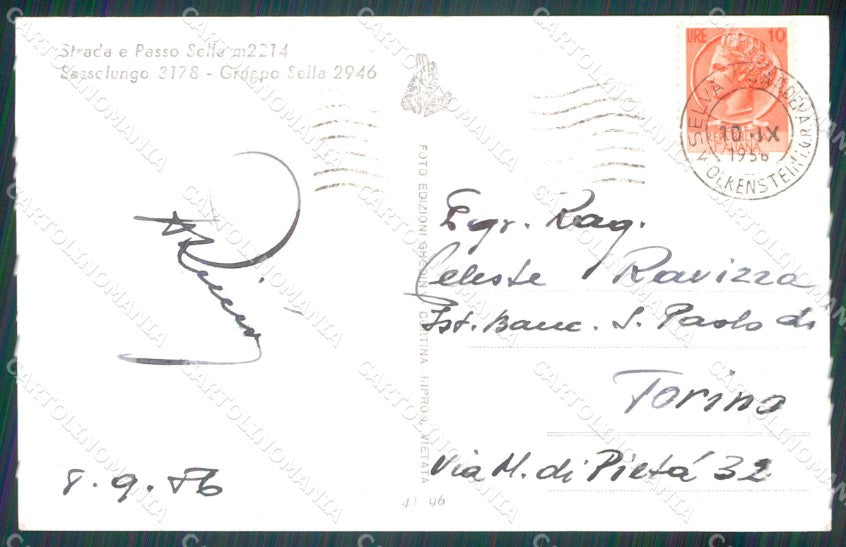 Strada e Passo Sella m2214
Sassolungo 3178 - Gruppo Sella 2946
LIRE 10
SELVA VAL GARDENA
10 IX
1956
WOLKENSTEIN
REPUBBLICA
ITALIANA
FOTO EDIZIONI GHEDINA - CORTINA - RIPROD. VIETATA
Egr. Rag.
Celeste Ravizza
Ist. Banc. S. Paolo di
Torino
Via M. di Pietá 32
8.9.56
41 96
CARTOLINOMANIA